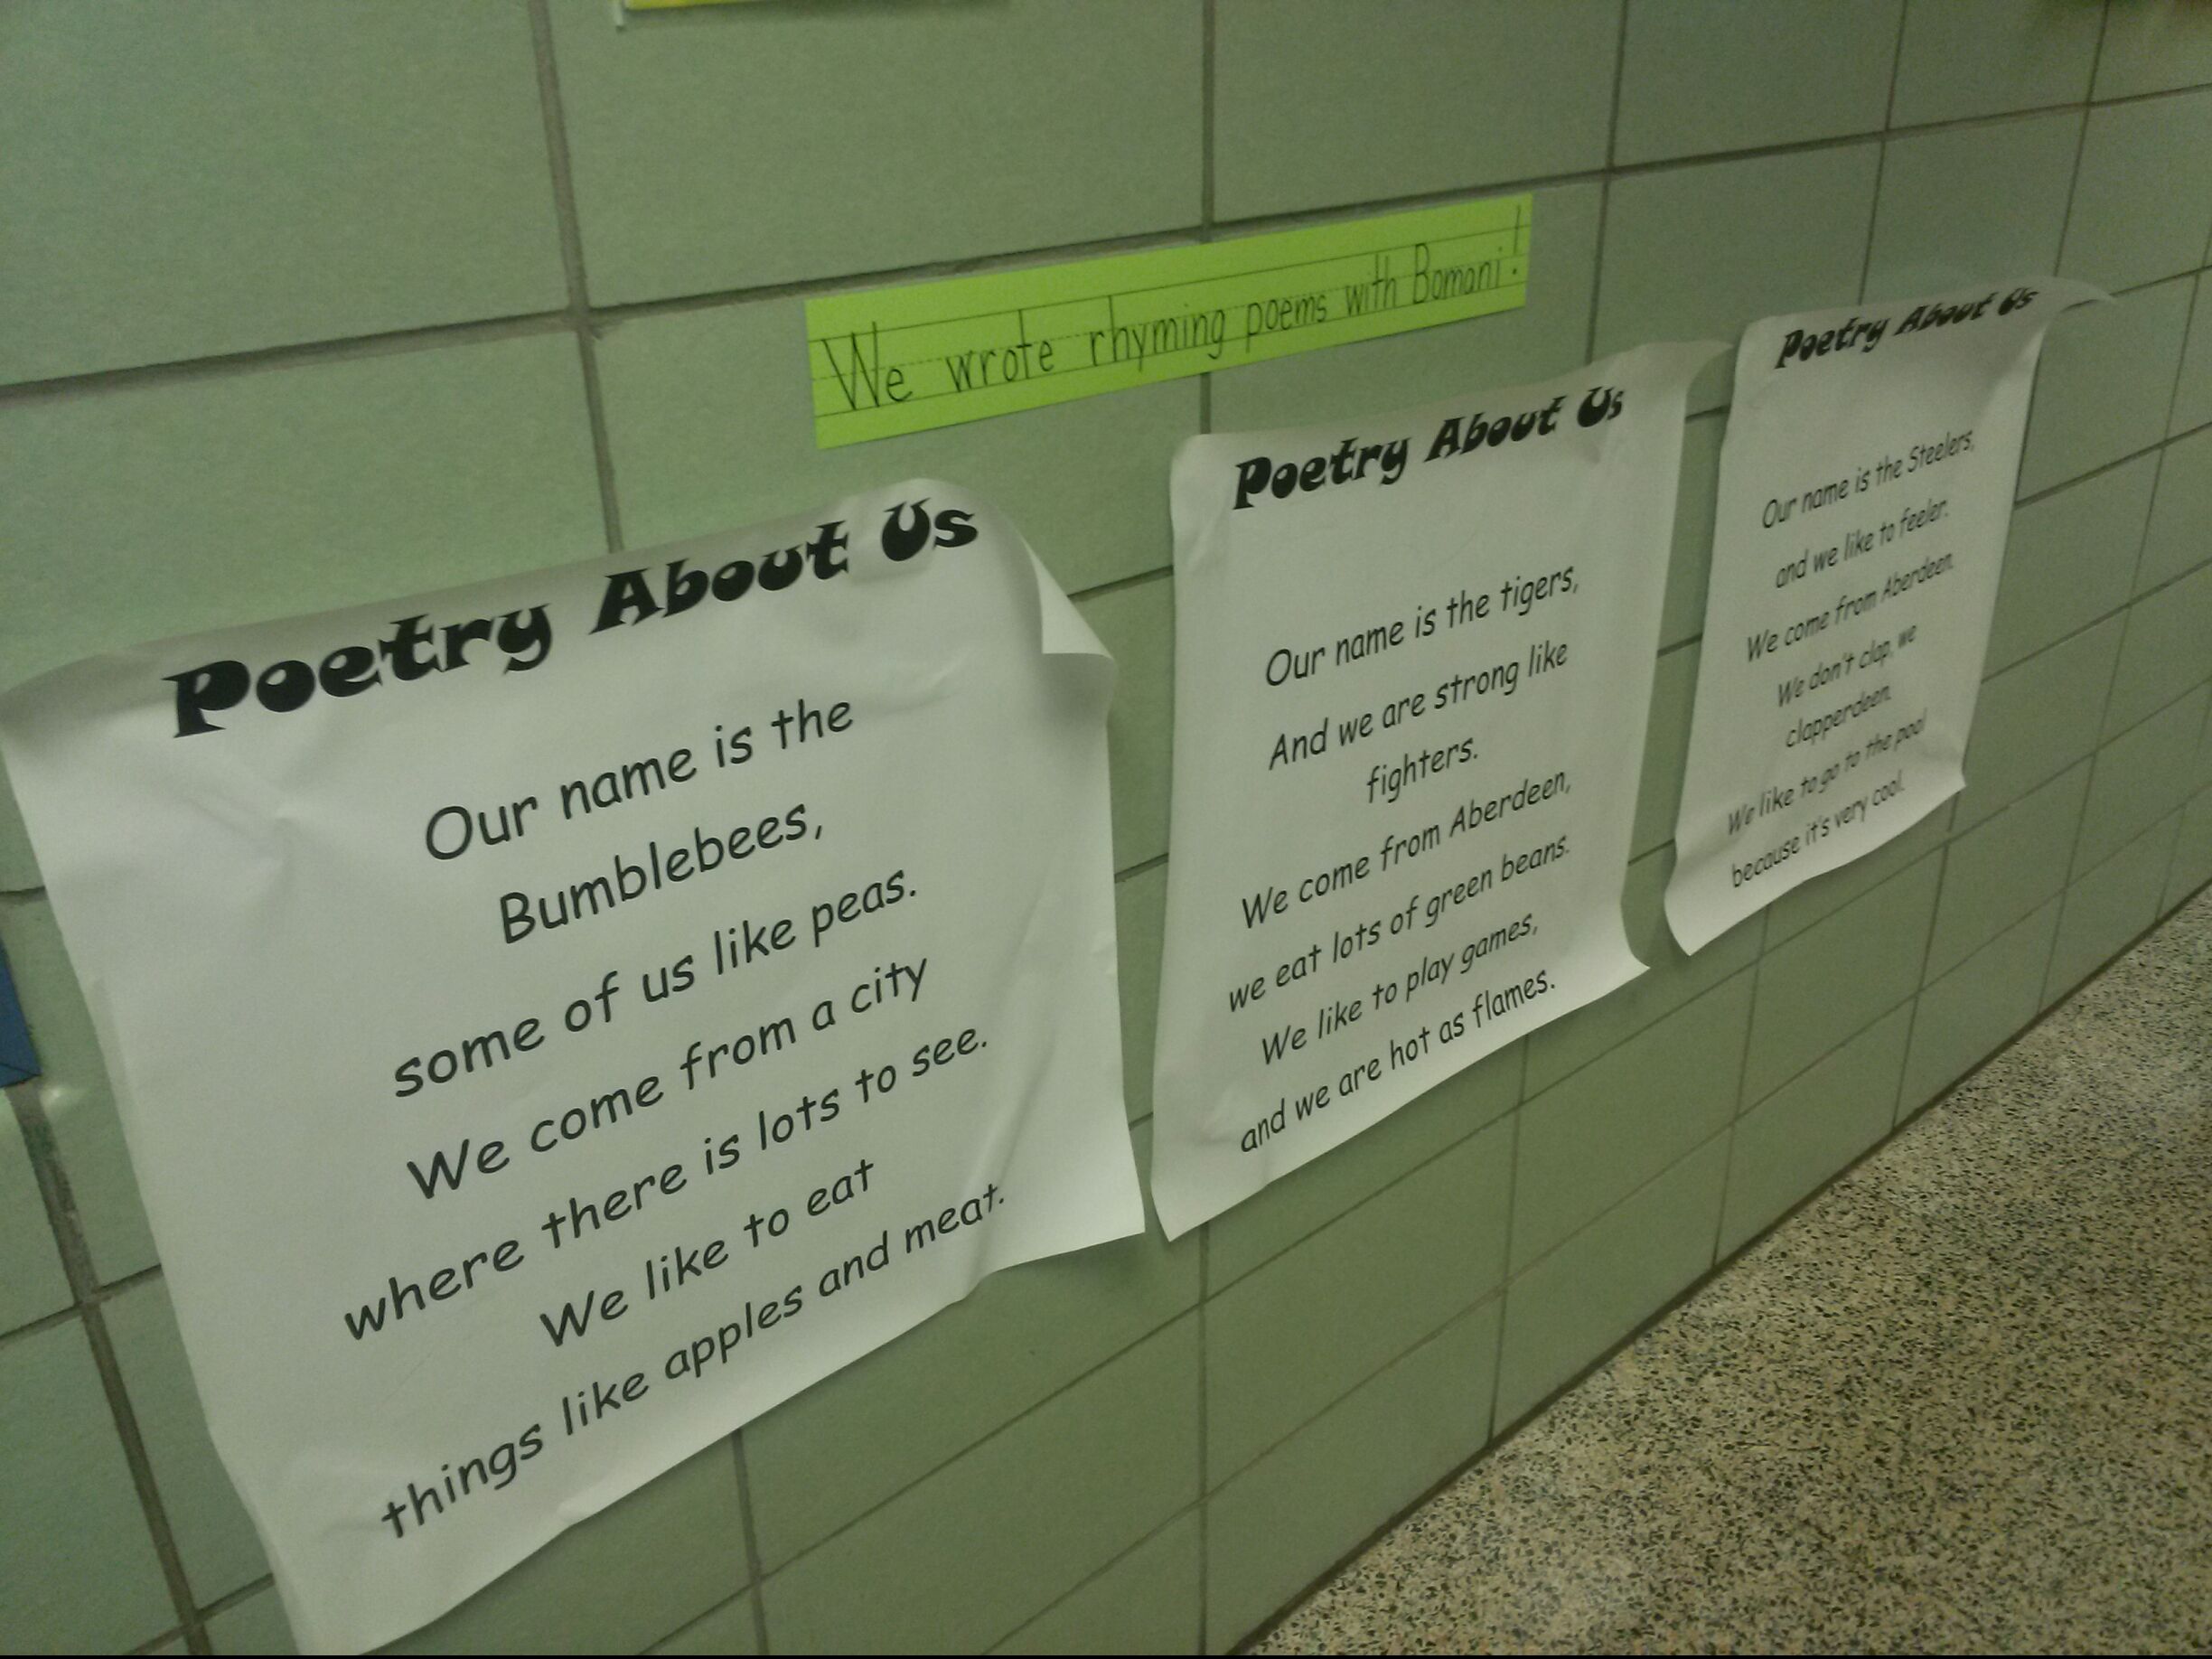 We wrote rhyming poems with Bomani!
Poetry About Us
Our name is the
Bumblebees,
some of us like peas.
We come from a city
where there is lots to see.
We like to eat
things like apples and meat.
Poetry About Us
Our name is the tigers,
And we are strong like
fighters.
We come from Aberdeen,
we eat lots of green beans.
We like to play games,
and we are hot as flames.
Poetry About Us
Our name is the Steelers,
and we like to feeler.
We come from Aberdeen.
We don't clap, we
clapperdeen.
We like to go to the pool
because it's very cool.